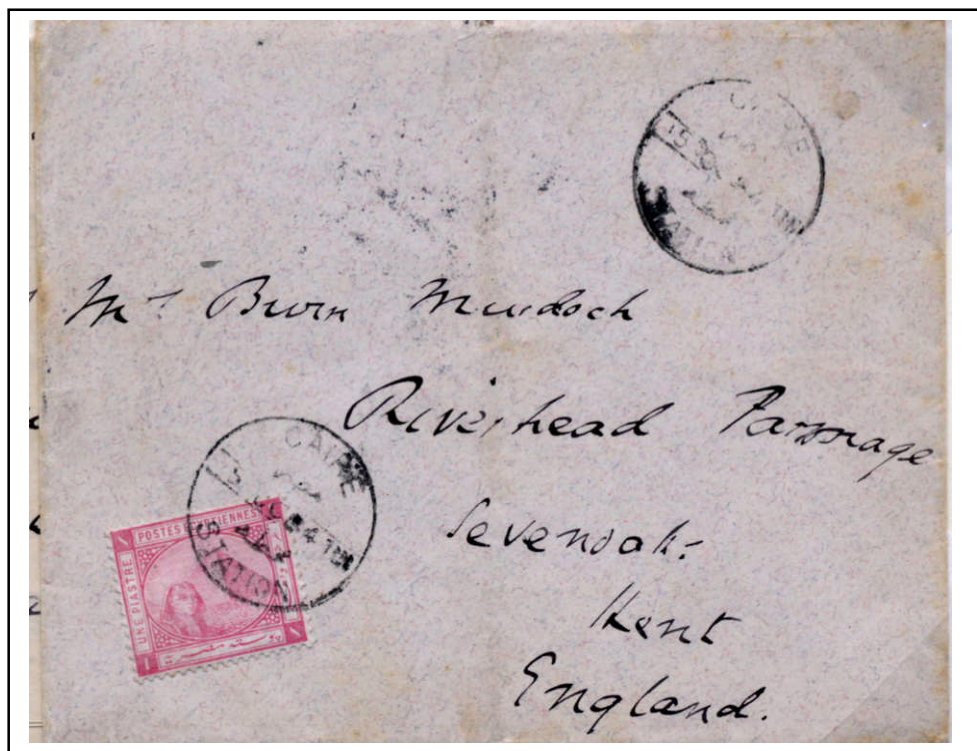 CAIRE
STATION
Mrs Burn Murdoch
Riverhead Parsonage
Sevenoaks
Kent
England.
CAIRE
STATION
POSTES EGYPTIENNES
UNE PIASTRE
1